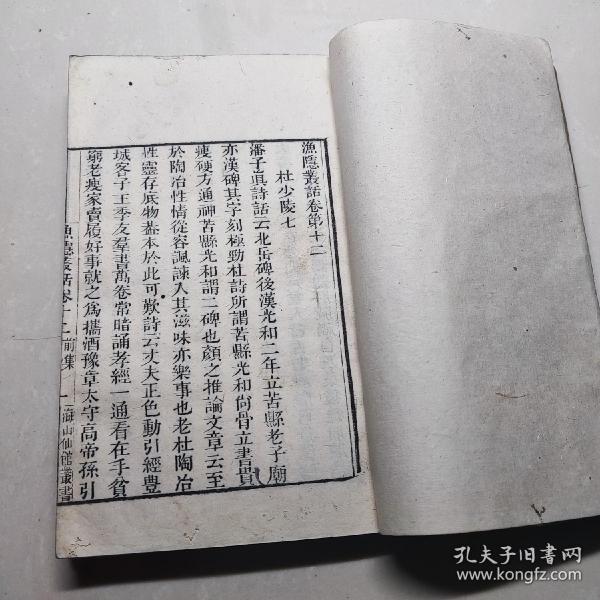 漁隱叢話卷第十二
杜少陵七
潘子眞詩話云北岳碑後漢光和二年立苦縣老子廟
亦漢碑其字刻極勁杜詩所謂苦縣光和尙骨立書貴
瘦硬方通神苦縣光和謂二碑也顏之推論文章云至
於陶冶性情從容諷諫入其滋味亦樂事也老杜陶冶
性靈存底物葢本於此可歎詩云丈夫正色動引經豊
城客子王季友羣書萬卷常暗誦孝經一通看在手貧
窮老瘦家賣履好事就之爲攜酒豫章太守高帝孫引
漁隱叢話卷十二前集
一
海山仙館叢書
孔夫子旧书网
www.kongfz.com